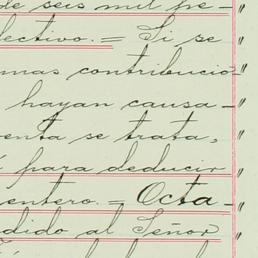 de seis mil pe-
lectivo. = Si se
mas contribucio-
hayan causa-
enta se trata,
para deducir
entero. = Octa-
dido al Señor